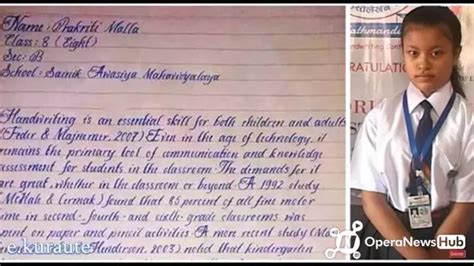 Name: Prakriti Malla
Class: 8 (Eight)
Sec: B
School: Sainik Awasiya Mahavidyalaya
Handwriting is an essential skill for both children and adults
(Feder & Majnemer, 2007) Even in the age of technology, it
remains the primary tool of communication and knowledge
assessment for students in the classroom. The demands for it
are great, whether in the classroom or beyond. A 1992 study
(McHale & Cermak) found that 85 percent of all fine motor
time in second-, fourth- and sixth-grade classrooms was
spent on paper and pencil activities. A more recent study
Henderson, 2003) noted that kindergarten
e.kuraute
athmand
andwriting Cont
GRATULATI
OperaNews Hub